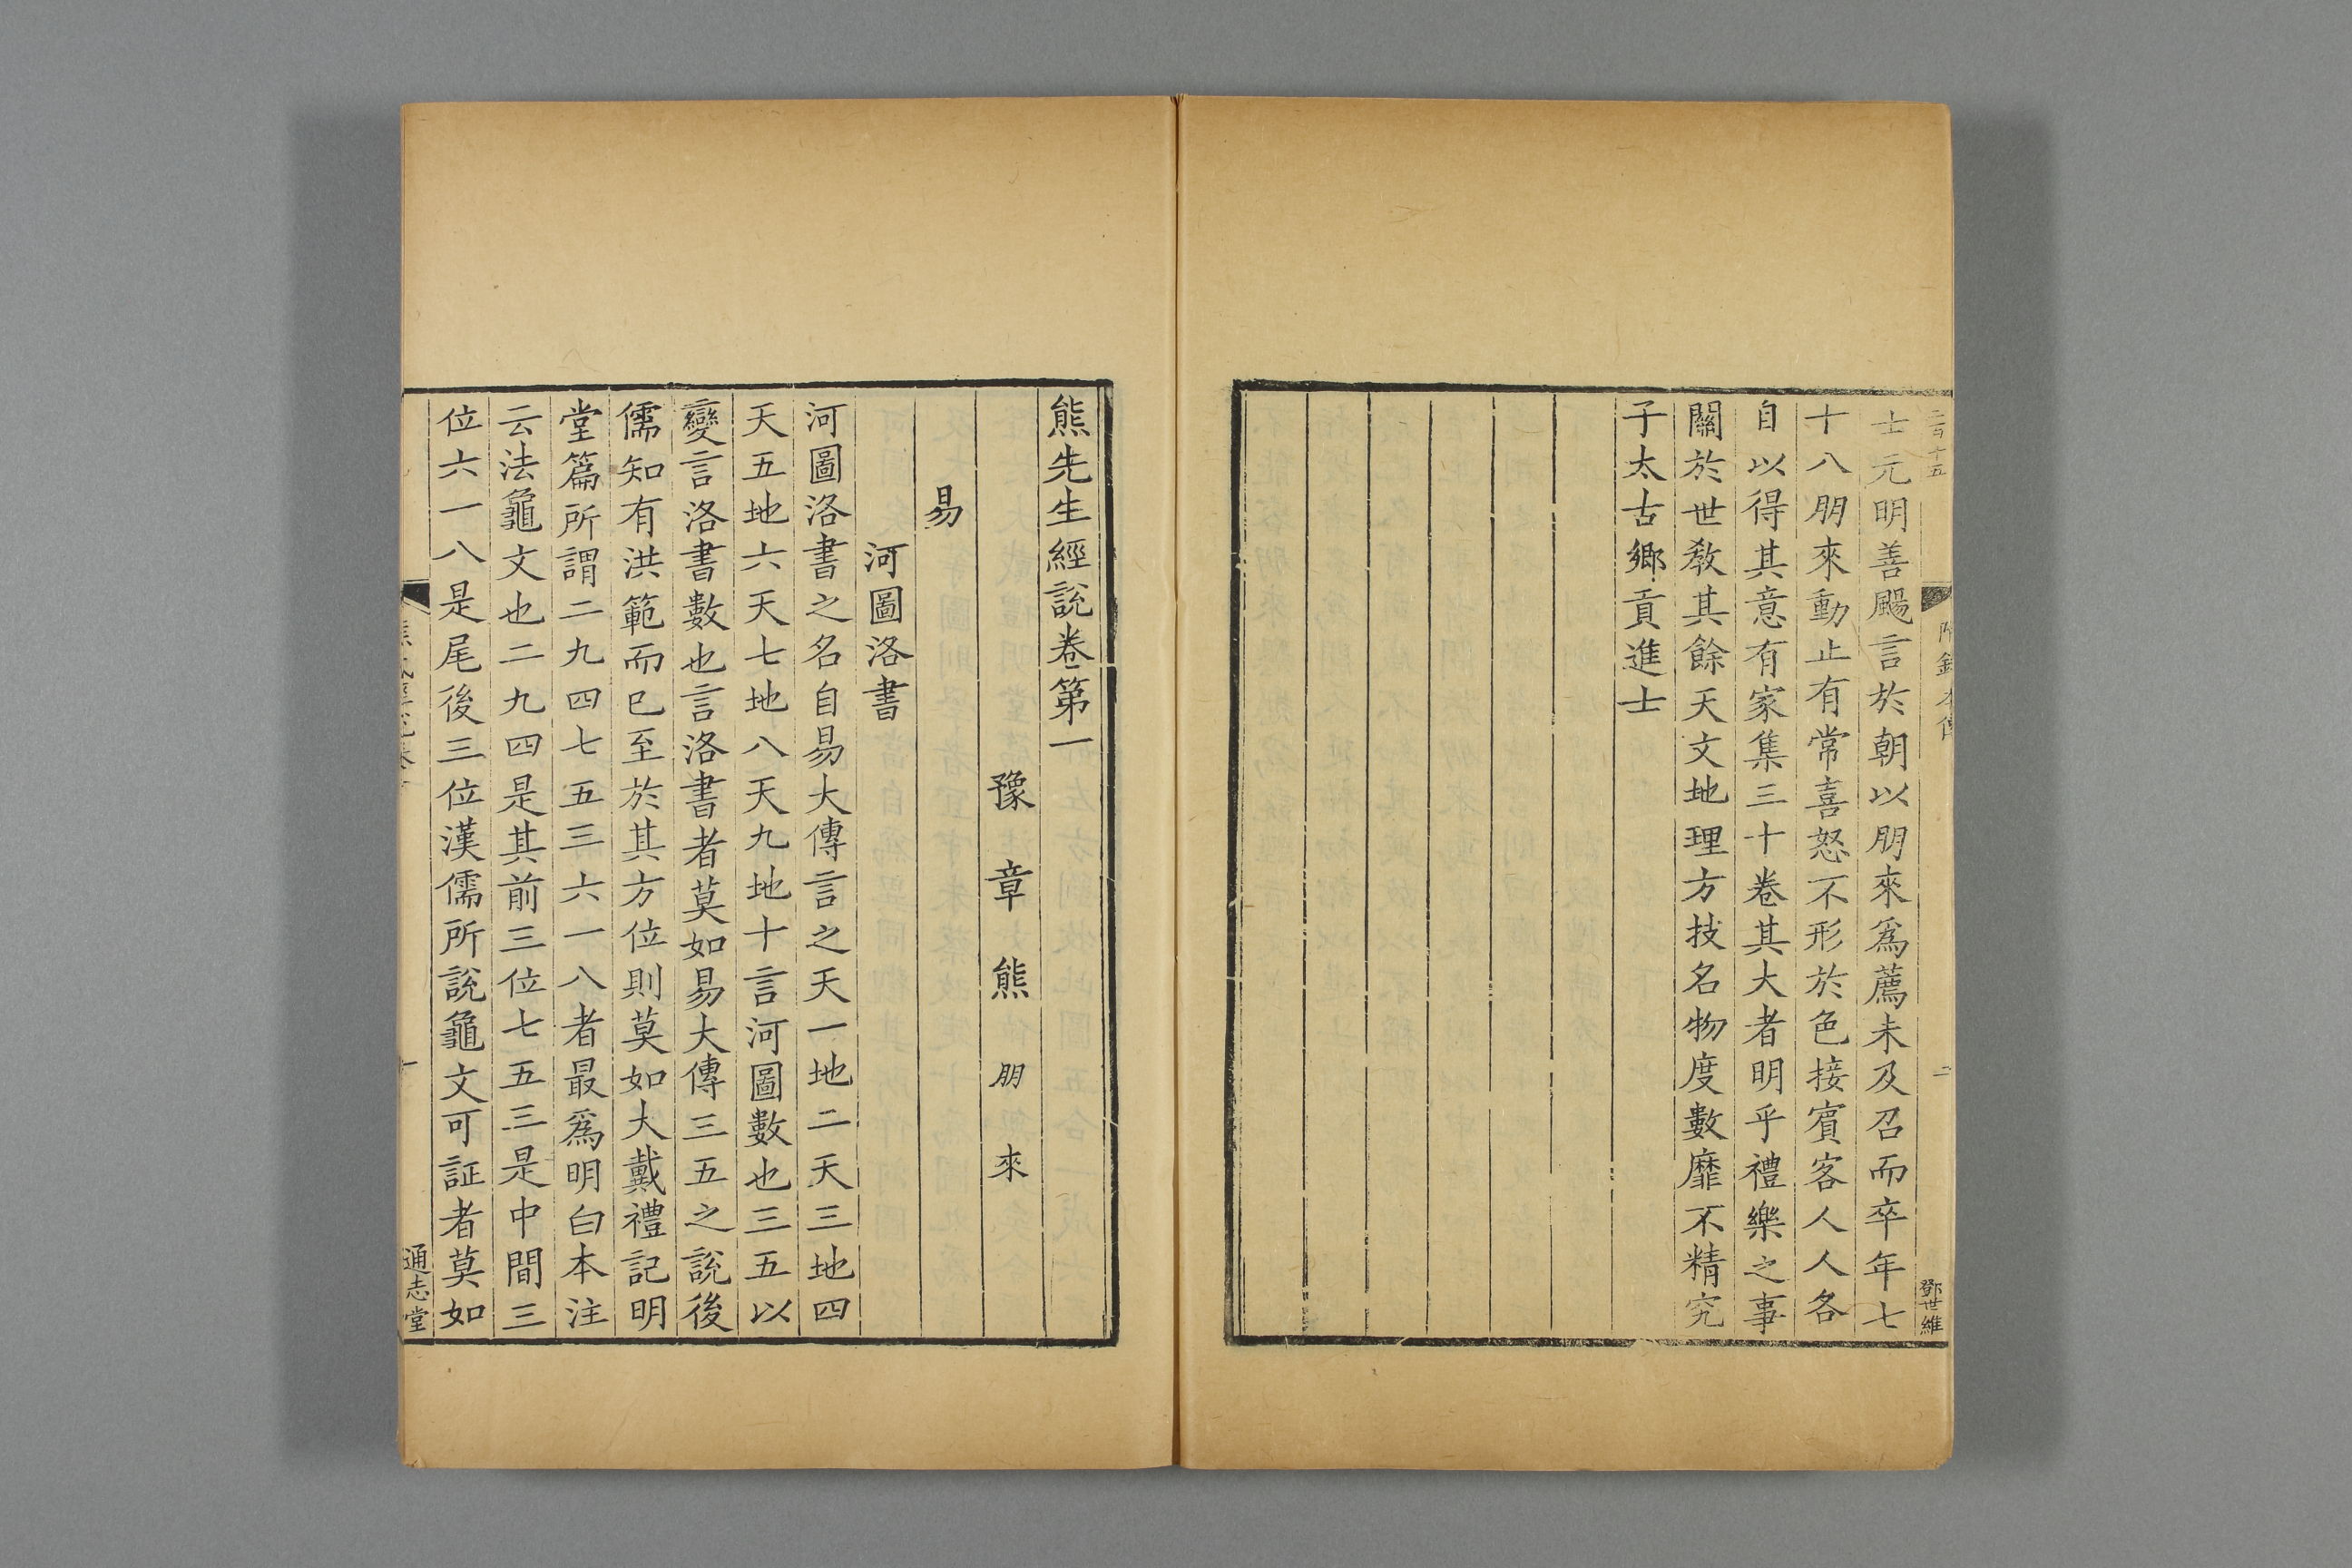 士元明善颺言於朝以朋來爲薦未及召而卒年七
十八朋來動止有常喜怒不形於色接賓客人人各
自以得其意有家集三十卷其大者明乎禮樂之事
關於世教其餘天文地理方技名物度數靡不精究
子太古鄉貢進士
二
鄧世維
熊先生經說卷第一
豫章熊朋來
易
河圖洛書
河圖洛書之名自易大傳言之天一地二天三地四
天五地六天七地八天九地十言河圖數也三五以
變言洛書數也言洛書者莫如易大傳三五之說後
儒知有洪範而已至於其方位則莫如大戴禮記明
堂篇所謂二九四七五三六一八者最爲明白本注
云法龜文也二九四是其前三位七五三是中間三
位六一八是尾後三位漢儒所說龜文可証者莫如
通志堂